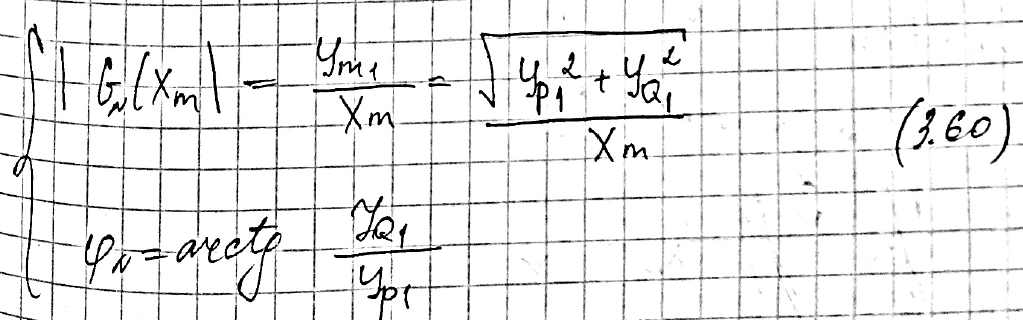 { |G_N(X_m| = y_m1 / X_m = √(y_p1² + y_Q1²) / X_m (3.60)
φ_N = arctg y_Q1 / y_p1